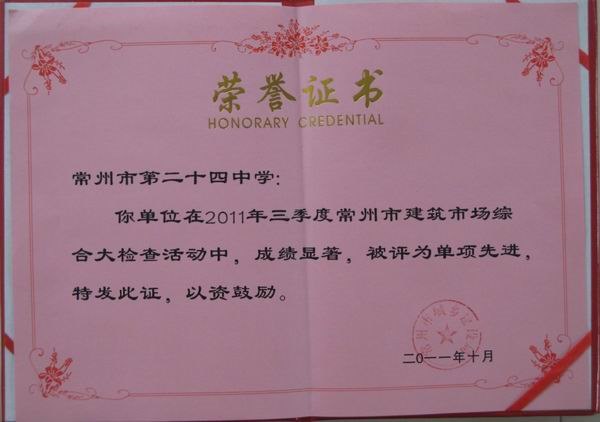 荣誉证书
HONORARY CREDENTIAL
常州市第二十四中学:
你单位在2011年三季度常州市建筑市场综
合大检查活动中，成绩显著，被评为单项先进，
特发此证，以资鼓励。
二〇一一年十月